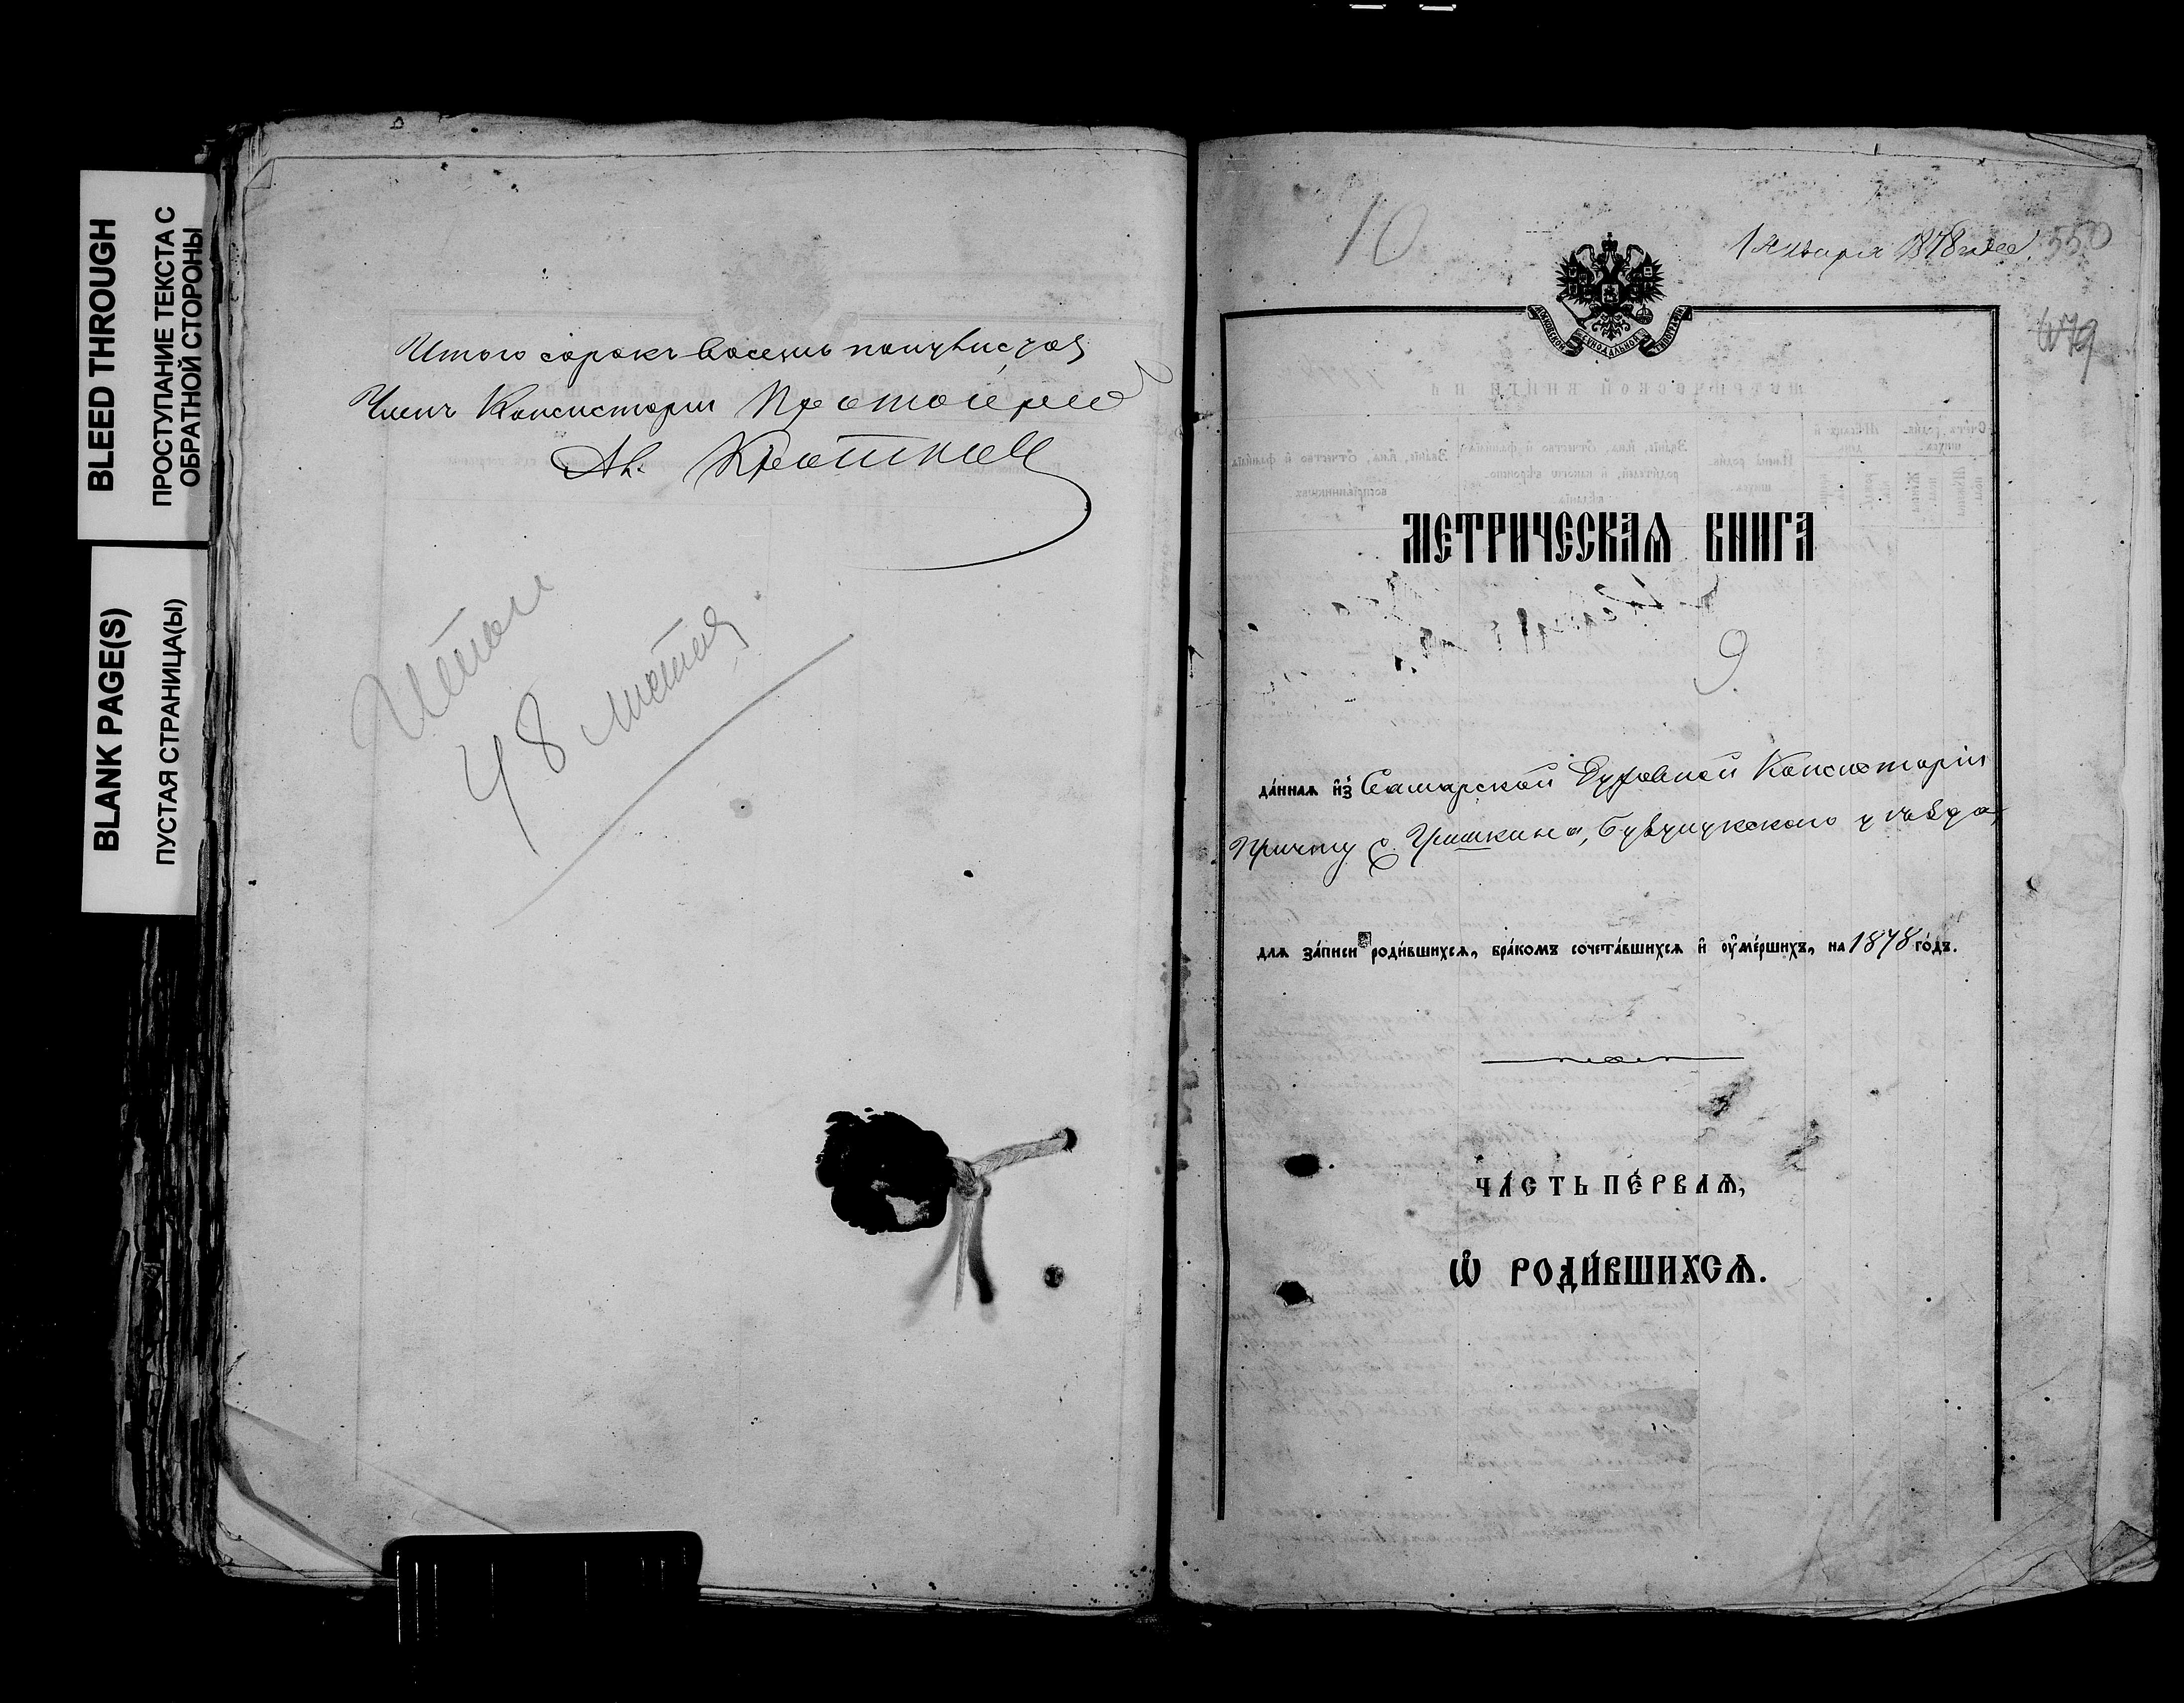 BLEED THROUGH
ПРОСТУПАНИЕ ТЕКСТА С
ОБРАТНОЙ СТОРОНЫ
BLANK PAGE(S)
ПУСТАЯ СТРАНИЦА(Ы)
Итого сорокъ восемь полулистов
Членъ Консисторіи Протоіерей
48 листов
10
1 Января 1878 года.
550
479
МОСКОВСКОЙ СѴНОДАЛЬНОЙ ТИПОГРАФІИ
МЕТРИЧЕСКАѦ КНИГА
9
да́ннаѧ и҆з̾ Самарской Духовной Консисторіи
Причту с. Гришкина, Бузулукскаго уѣзда,
длѧ за́писи роди́вшихсѧ, бра́комъ сочета́вшихсѧ и҆ ᲂу҆ме́ршихъ, на 1878 го́дъ.
ЧА́СТЬ ПЕ́РВАѦ,
Ѡ҆ РОДИ́ВШИХСѦ.